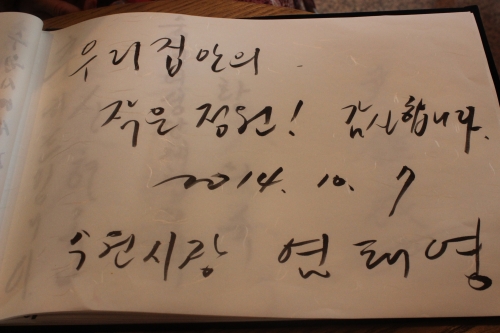 우리집안의
작은 정원! 감사합니다.
2014. 10. 7
수원시장 염태영